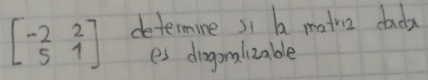 [-2 2] determine si la matriz dada
[5 1] es diagonalizable